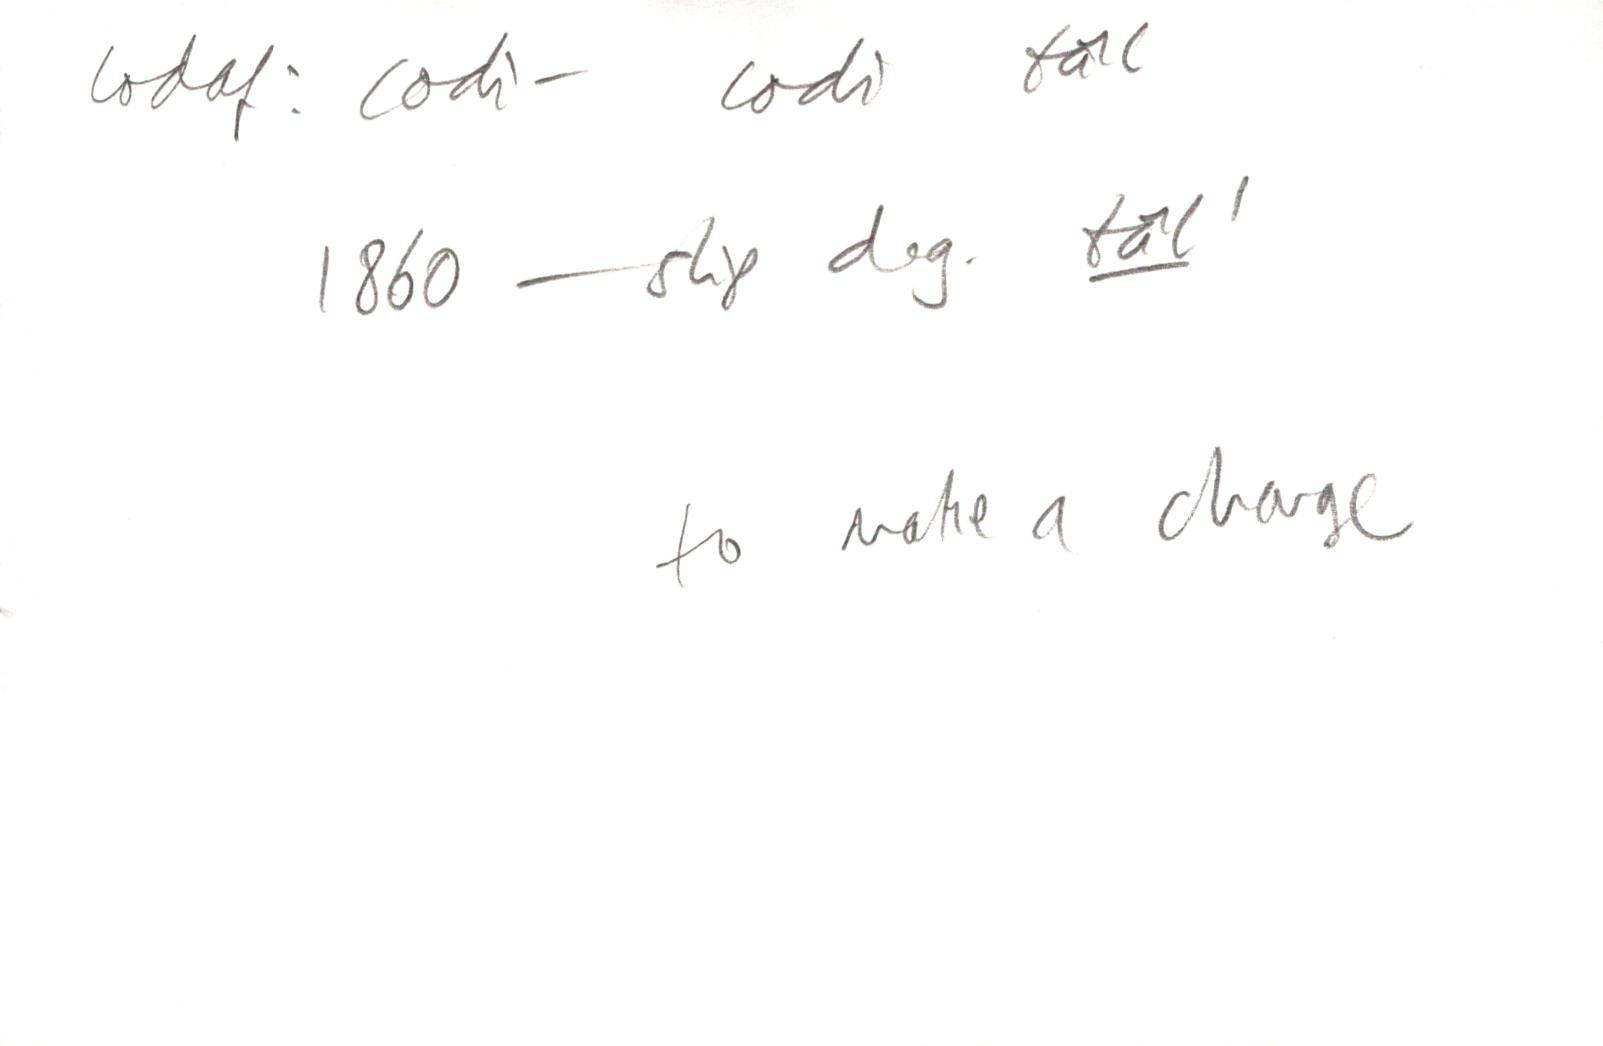 codaf: codi – codi tâl
1860 — slip deg. tâl¹
to make a charge